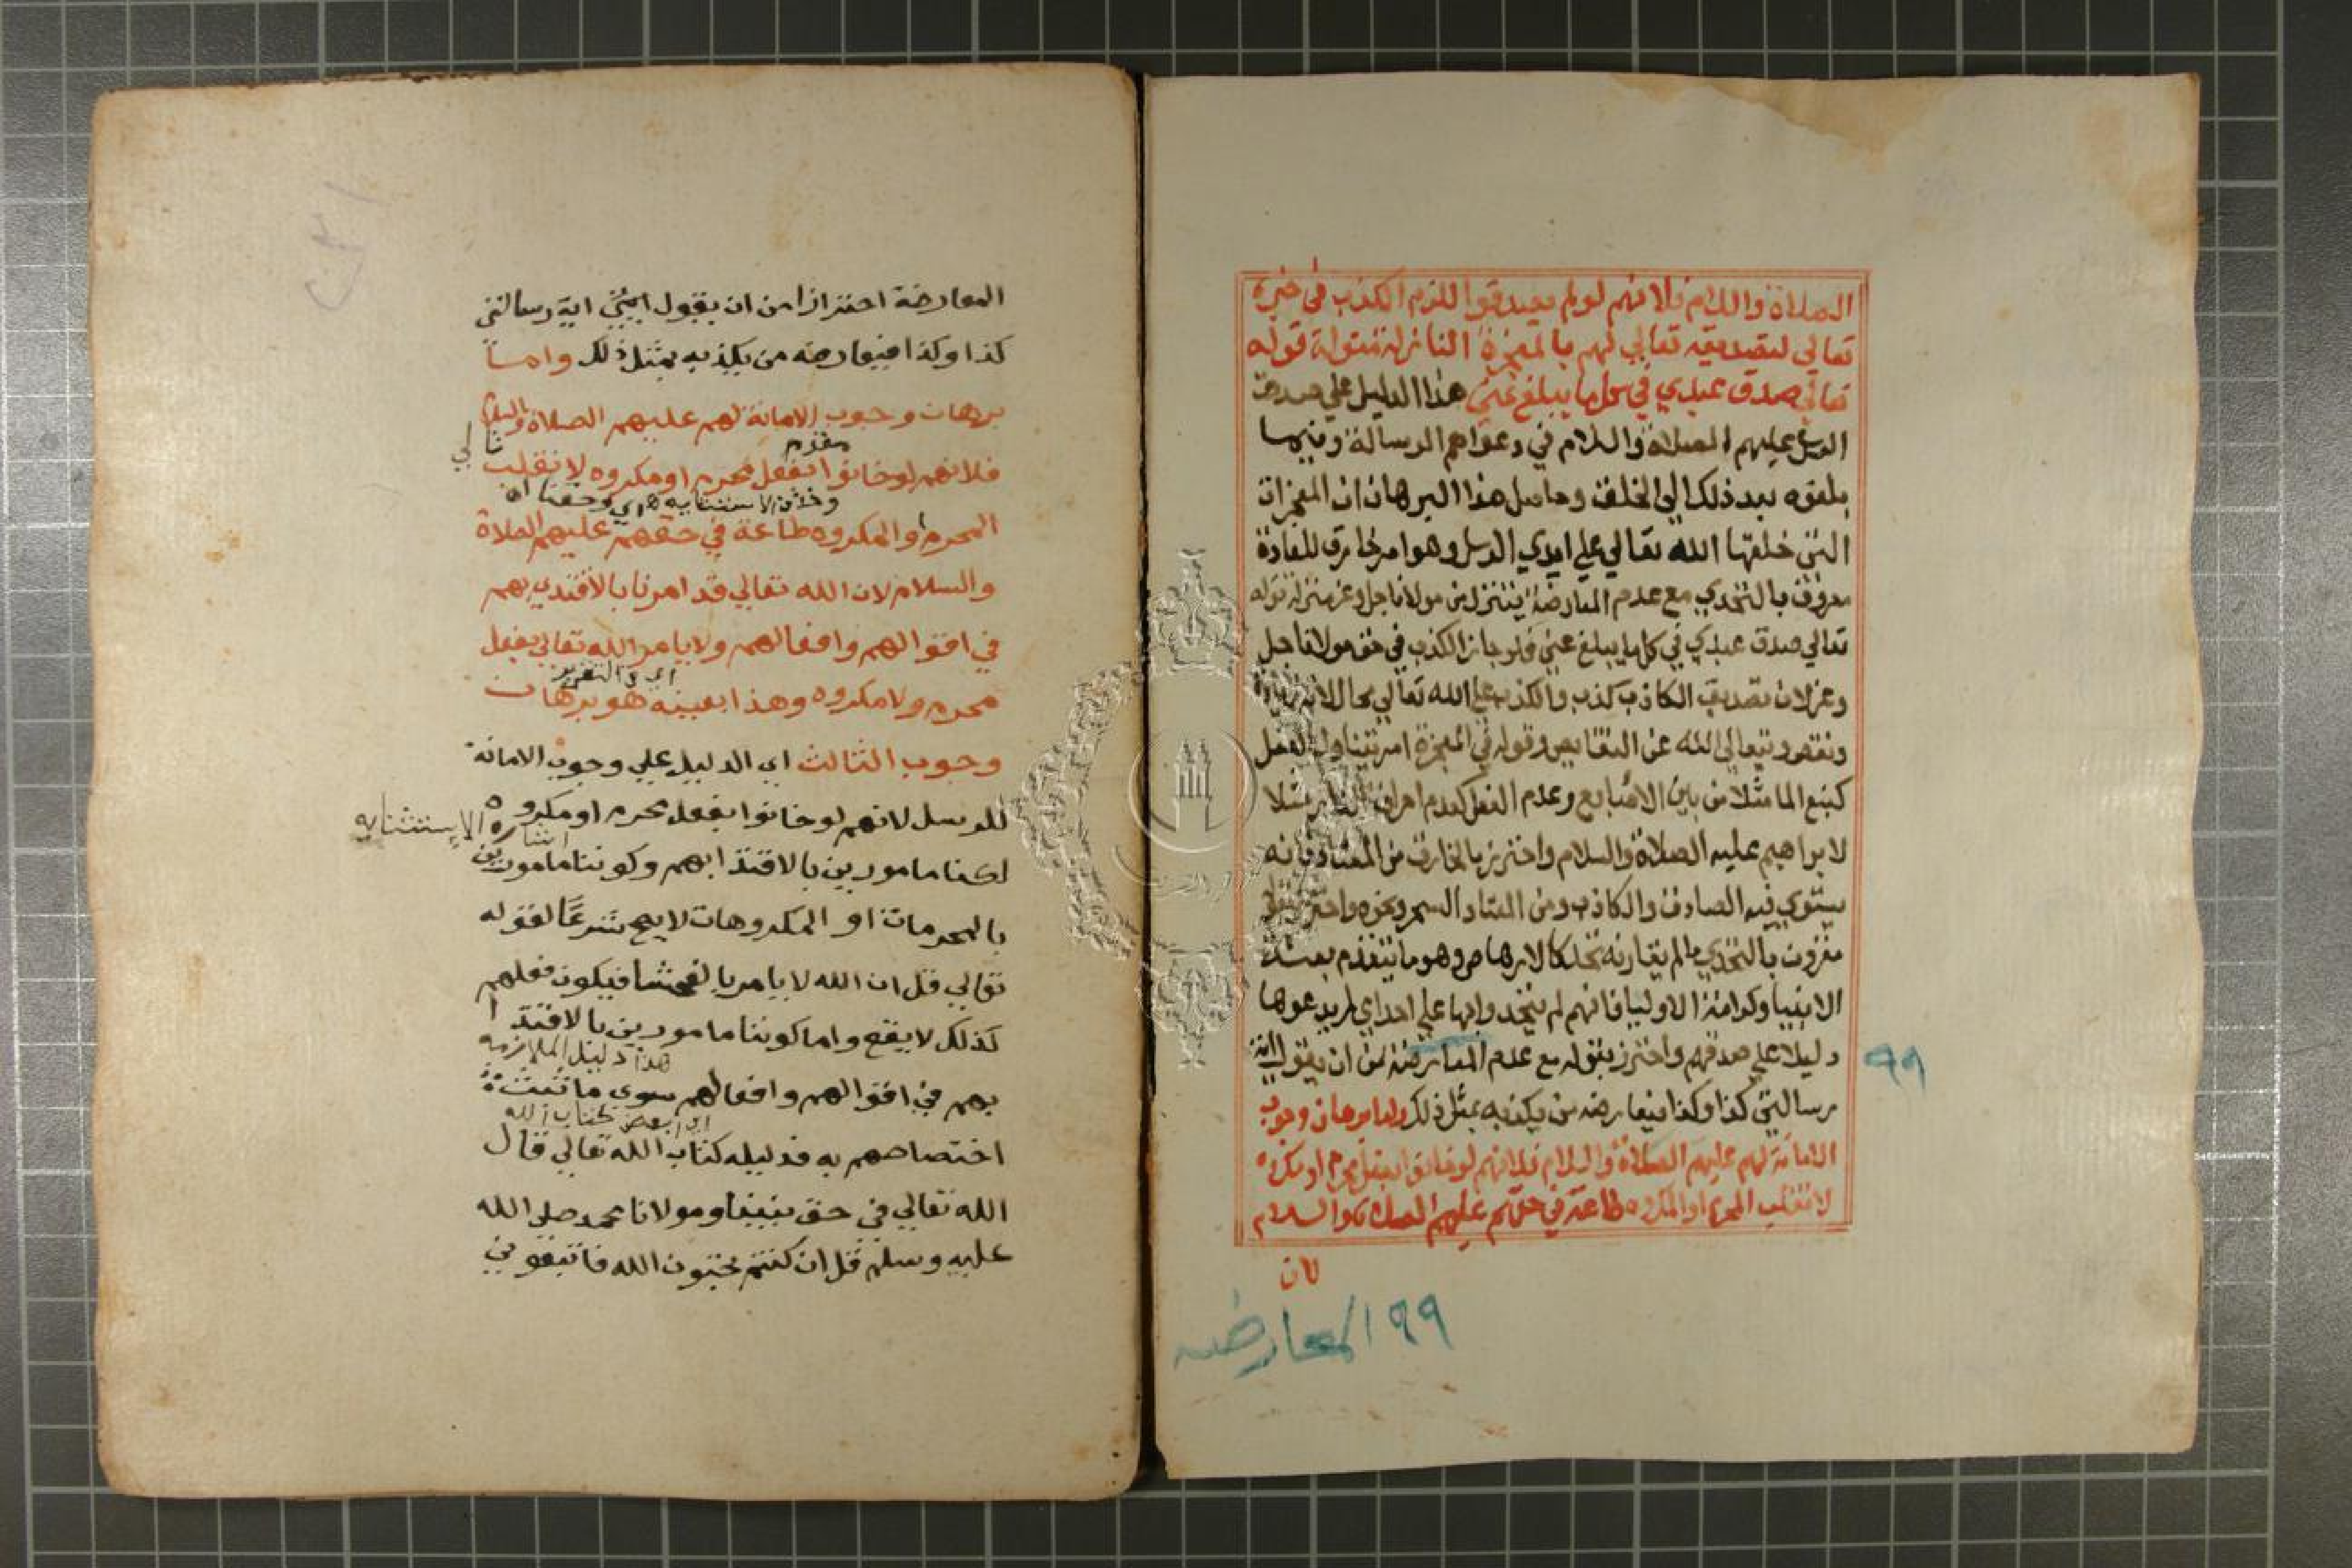 الصلاة والسلام فلانهم لو لم يصدقوا للزم الكذب في خبره
تعالي لتصديقه تعالي لهم بالمعجزة النازلة منزلة قوله
تعالي صدق عبدي في كل ما يبلغ عني هذا الدليل علي صدق
الرسل عليهم الصلاة والسلام في دعواهم الرسالة وفيما
بلغوه بعد ذلك الي الخلق وحاصل هذا البرهان ان المعجزات
التي خلقها الله تعالي علي ايدي الرسل وهو امر خارق للعادة
مقرون بالتحدي مع عدم المعارضة يتنزل من مولانا جل وعز منزلة قوله
تعالي صدق عبدي في كل ما يبلغ عني فلو جاز الكذب في حق مولانا جل
وعز لان تصديق الكاذب كذب والكذب علي الله تعالي محال لانه
ونقص ويتعالي الله عن النقايص وقوله في المعجزة امر يتناول الفعل
كنبع الما مثلا من باين الاصابع وعدم الفعل كعدم احراق النار مثلا
لابراهيم عليه الصلاة والسلام واحترز بالخارق من المعتاد فانه
يستوي فيه الصادق والكاذب ومن المعتاد السحر ونحوه واحترز بقوله
مقرون بالتحدي مما لم يقارنه تحد كالارهاص وهو ما يتقدم بعثة
الانبيا وكرامة الاوليا فانهم لم يتحدوا بها علي احد اي لم يدعوها
دليلا علي صدقهم واحترز بقوله مع عدم المعارضة من ان يقول اية
رسالتي كذا وكذا فيعارضه من يكذبه بمثل ذلك واما برهان وجوب
الامانة لهم عليهم الصلاة والسلام فلانهم لو خانوا بفعل محرم او مكروه
لانقلب المحرم او المكروه طاعة في حقهم عليهم الصلاة والسلام
لان
٩٩
٩٩ المعارضه
المعارضة احترازا من ان يقول اية رسالتي
كذا وكذا فيعارضه من يكذبه بمثل ذلك واما
برهان وجوب الامانة لهم عليهم الصلاة والسلام
مقدم
تالي
فلانهم لو خانوا بفعل محرم او مكروه لانقلب
المحرم او المكروه طاعة في حقهم عليهم الصلاة
والسلام لان الله تعالي قد امرنا بالاقتدي بهم
في اقوالهم وافعالهم ولا يامر الله تعالي بفعل
محرم ولا مكروه وهذا بعينه هو برهان
وجوب الثالث اي الدليل علي وجوب الامانة
للرسل لانهم لو خانوا بفعل محرم او مكروه
اشارة الاستثنايه
لكنا مامورين بالاقتدا بهم وكوننا مامورين
بالمحرمات او المكروهات لا يصح شرعا لقوله
تعالي قل ان الله لا يامر بالفحشا فيكون فعلهم
كذلك لا يقع واما كوننا مامورين بالاقتدا
هذا دليل الملازمه
بهم في اقوالهم وافعالهم سوي ما ثبت
اي بعض كتاب الله
اختصاصهم به فدليله كتاب الله تعالي قال
الله تعالي في حق نبينا ومولانا محمد صلي الله
عليه وسلم قل ان كنتم تحبون الله فاتبعوني